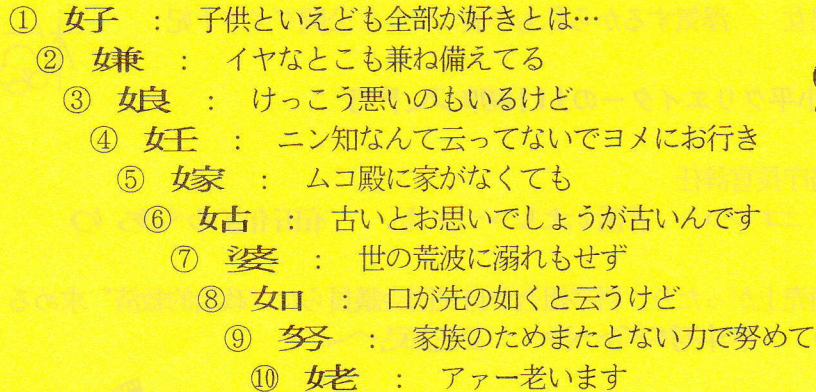 ① 好 : 子供といえども全部が好きとは…
② 嫌 : イヤなとこも兼ね備えてる
③ 娘 : けっこう悪いのもいるけど
④ 妊 : ニン知なんて云ってないでヨメにお行き
⑤ 嫁 : ムコ殿に家がなくても
⑥ 姑 : 古いとお思いでしょうが古いんです
⑦ 婆 : 世の荒波に溺れもせず
⑧ 如 : 口が先の如くと云うけど
⑨ 努 : 家族のためまたとない力で努めて
⑩ 姥 : アァー老います